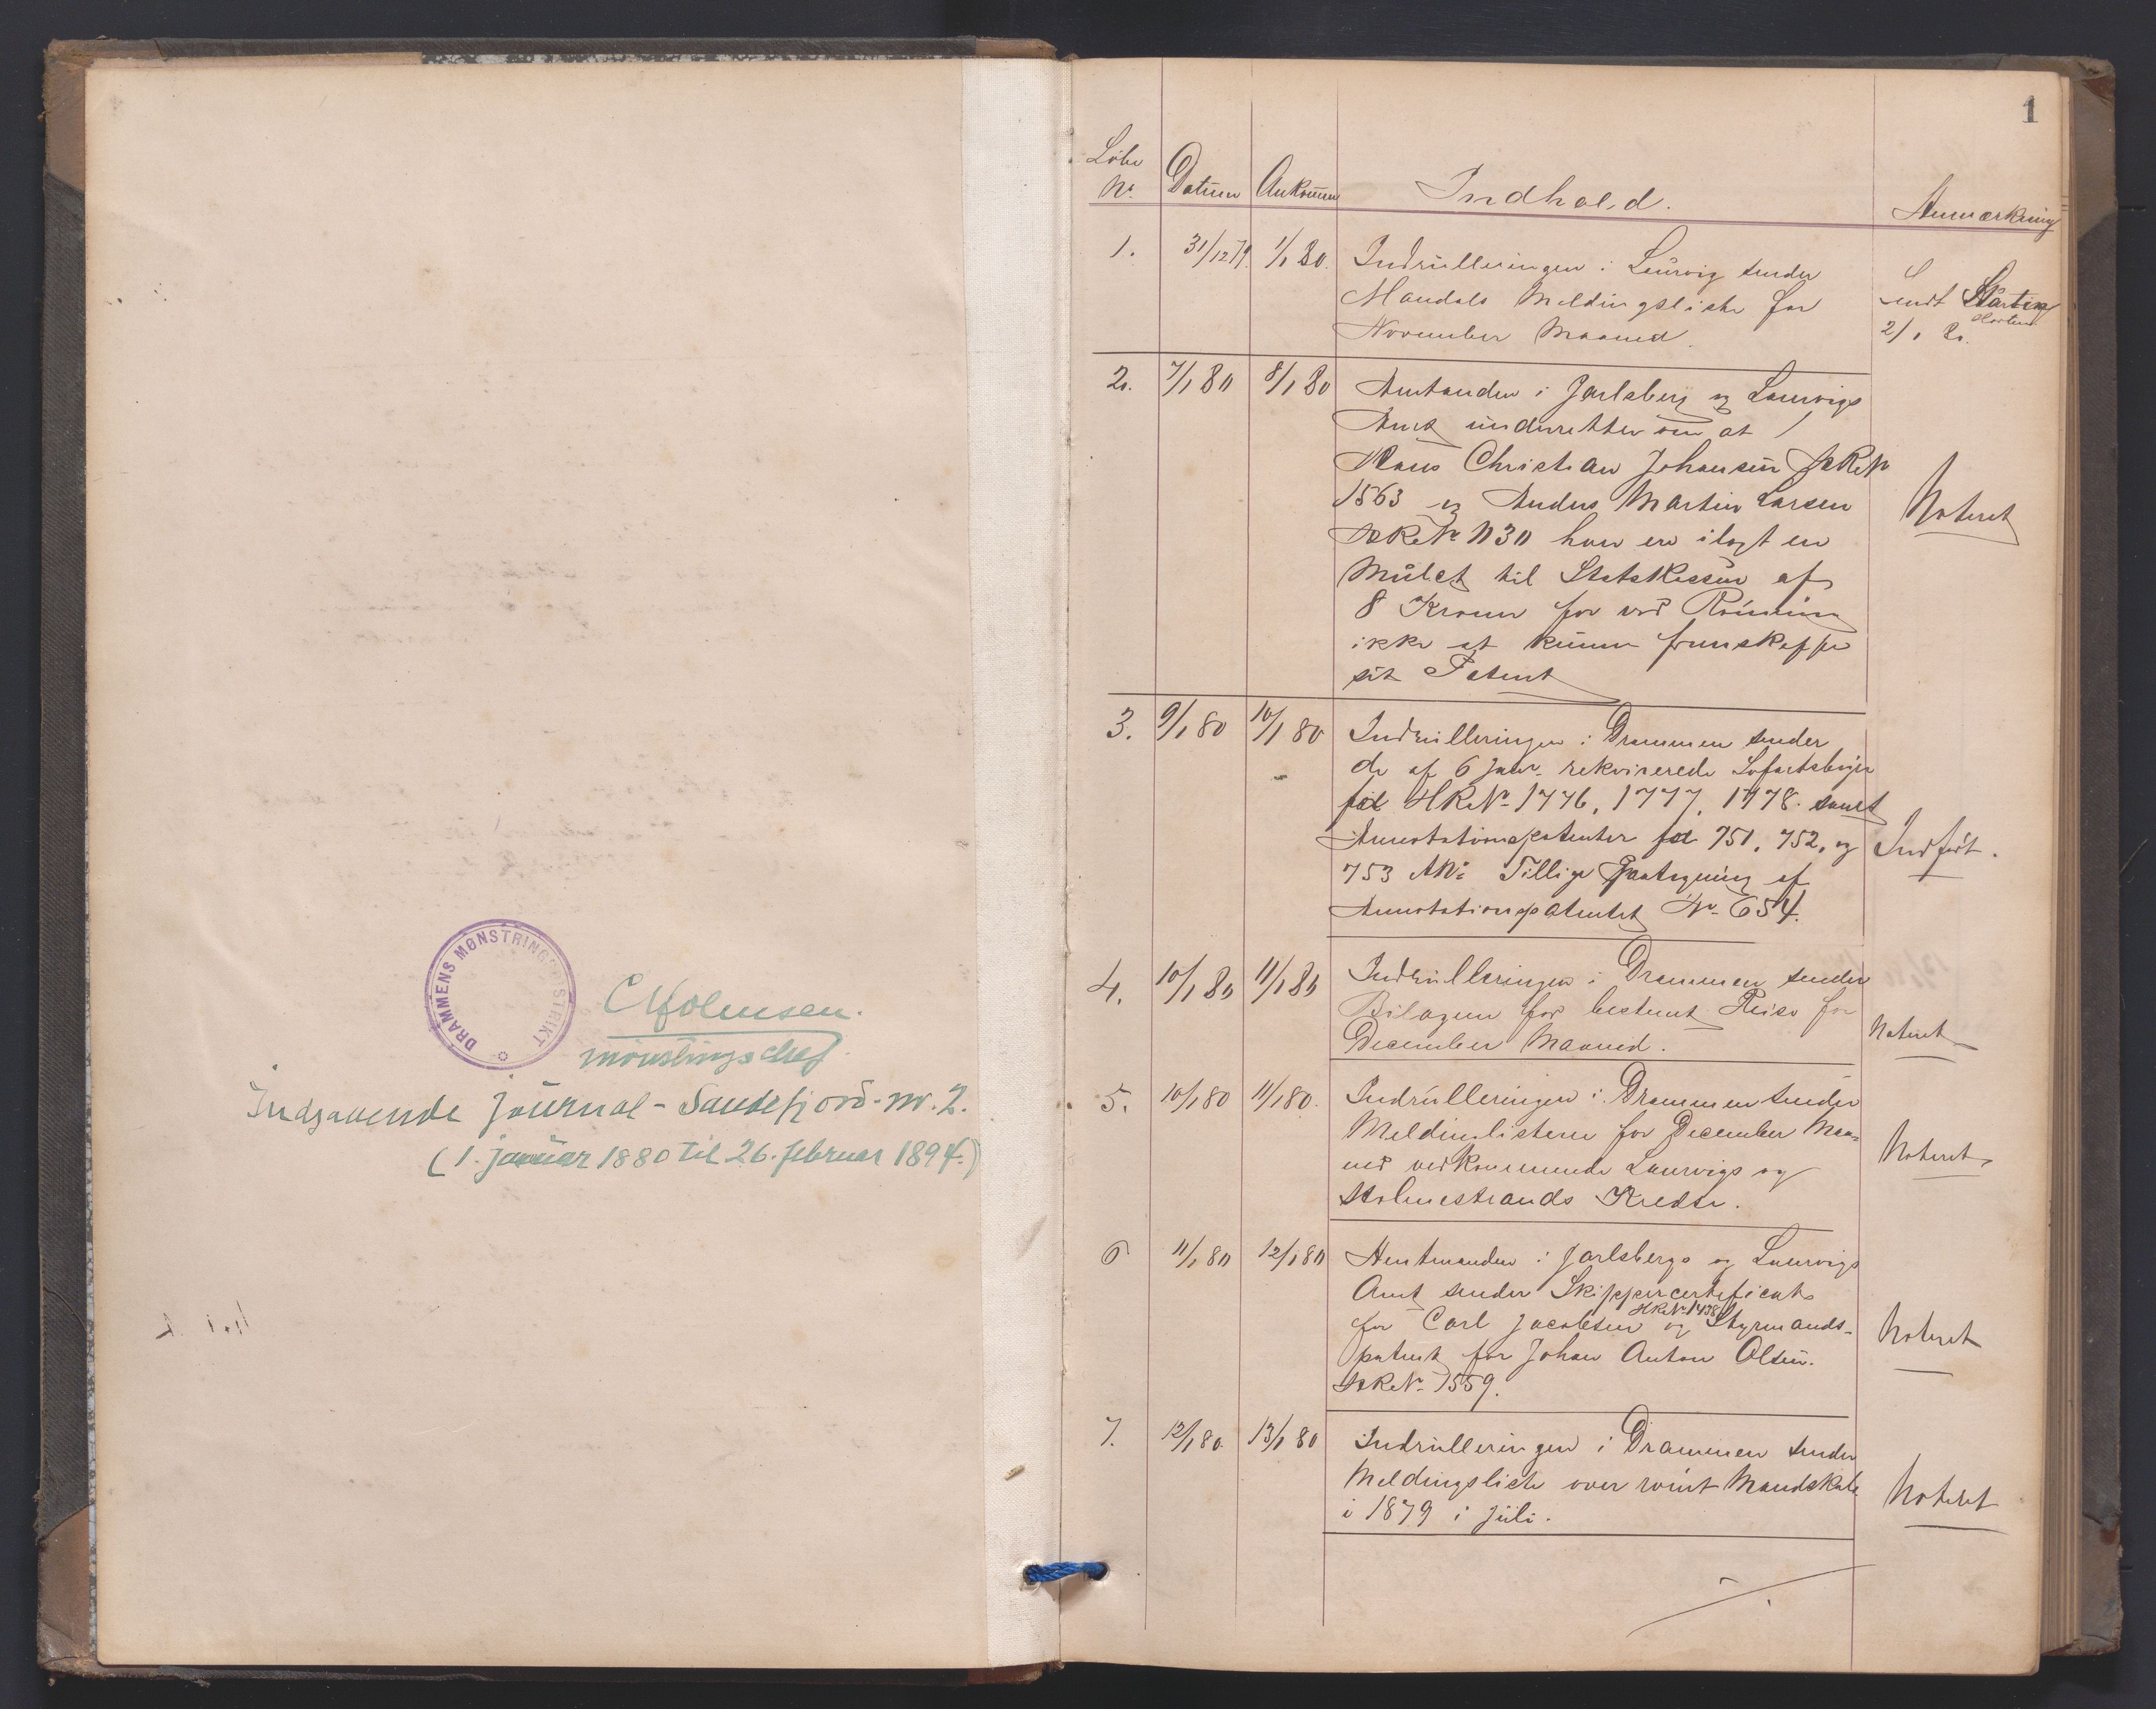 DRAMMENS MØNSTRINGSDISTRIKT
mønstringschef.
Indgaaende journal - Sandefjord - nr. 2.
(1. januar 1880 til 26. februar 1894.)
1
Løbe
No. Datum Ankommen Indhold. Anmærkning
1. 31/12 79. 1/1 80. Indrulleringen i Laurvig sender
Mandals Meldingsliste for
November Maaned.
Sendt
Horten
2/1 80.
2. 7/1 80 8/1 80 Amtmanden i Jarlsberg og Laurvigs
Amt underretter om at
Hans Christian Johansen HRNo
1563 og Anders Martin Larsen
HRNo 1130 have en ilagt en
Mulct til Statskassen af
8 Kroner for ved Rømning
ikke at kunne fremskaffe
sit Patent
Noteret
3. 9/1 80 10/1 80 Indrulleringen i Drammen sender
de af 6 Janr. rekvirerede Søfartsbøger
for HRNo 1776, 1777, 1778. samt
Annotationspatenter for 751, 752, og
753 ANo. Tillige Paategning af
Annotationspatentet No. 654.
Indført.
4. 10/1 80 11/1 80 Indrulleringen i Drammen sender
Bilagene for bestemt Reise for
December Maaned.
Noteret
5. 10/1 80 11/1 80. Indrulleringen i Drammen sender
Meldinglisterne for December Maa-
ned vedkommende Laurvigs og
Holmestrands Kredse.
Noteret
6 11/1 80 12/1 80 Amtmanden i Jarlsbergs og Laurvigs
Amt sender Skippercertificats
HRNo 1438
for Carl Jacobsen og Styrmands-
patent for Johan Anton Olsen.
HRNo. 1559.
Noteret
7. 12/1 80. 13/1 80 Indrulleringen i Drammen sender
Meldingsliste over rømt Mandskab
i 1879 i Juli.
Noteret